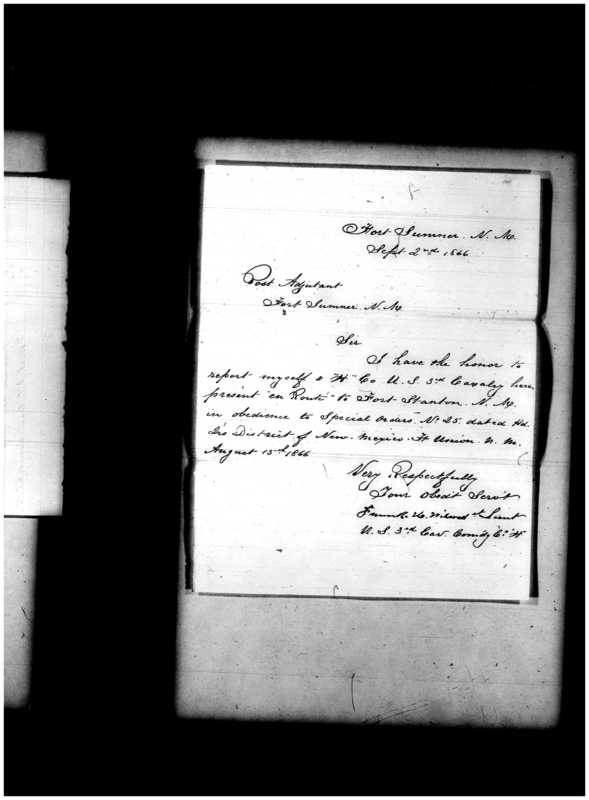 Fort Sumner. N. Mx.
Sept. 2nd 1866
Post Adjutant
Fort Sumner. N. Mx
Sir
I have the honor to
report myself & "H" Co U. S. 3rd Cavalry here
present "en Route" to Fort Stanton. N. Mx.
in obedience to Special Orders. No 25. dated Hd.
Qrs District of New. Mexico. Ft Union. N. M.
August 15th 1866
Very Respectfully
Your Obedt Servt
Frank U. Lieut
U. S. 3rd Cav. Comdg Co. H